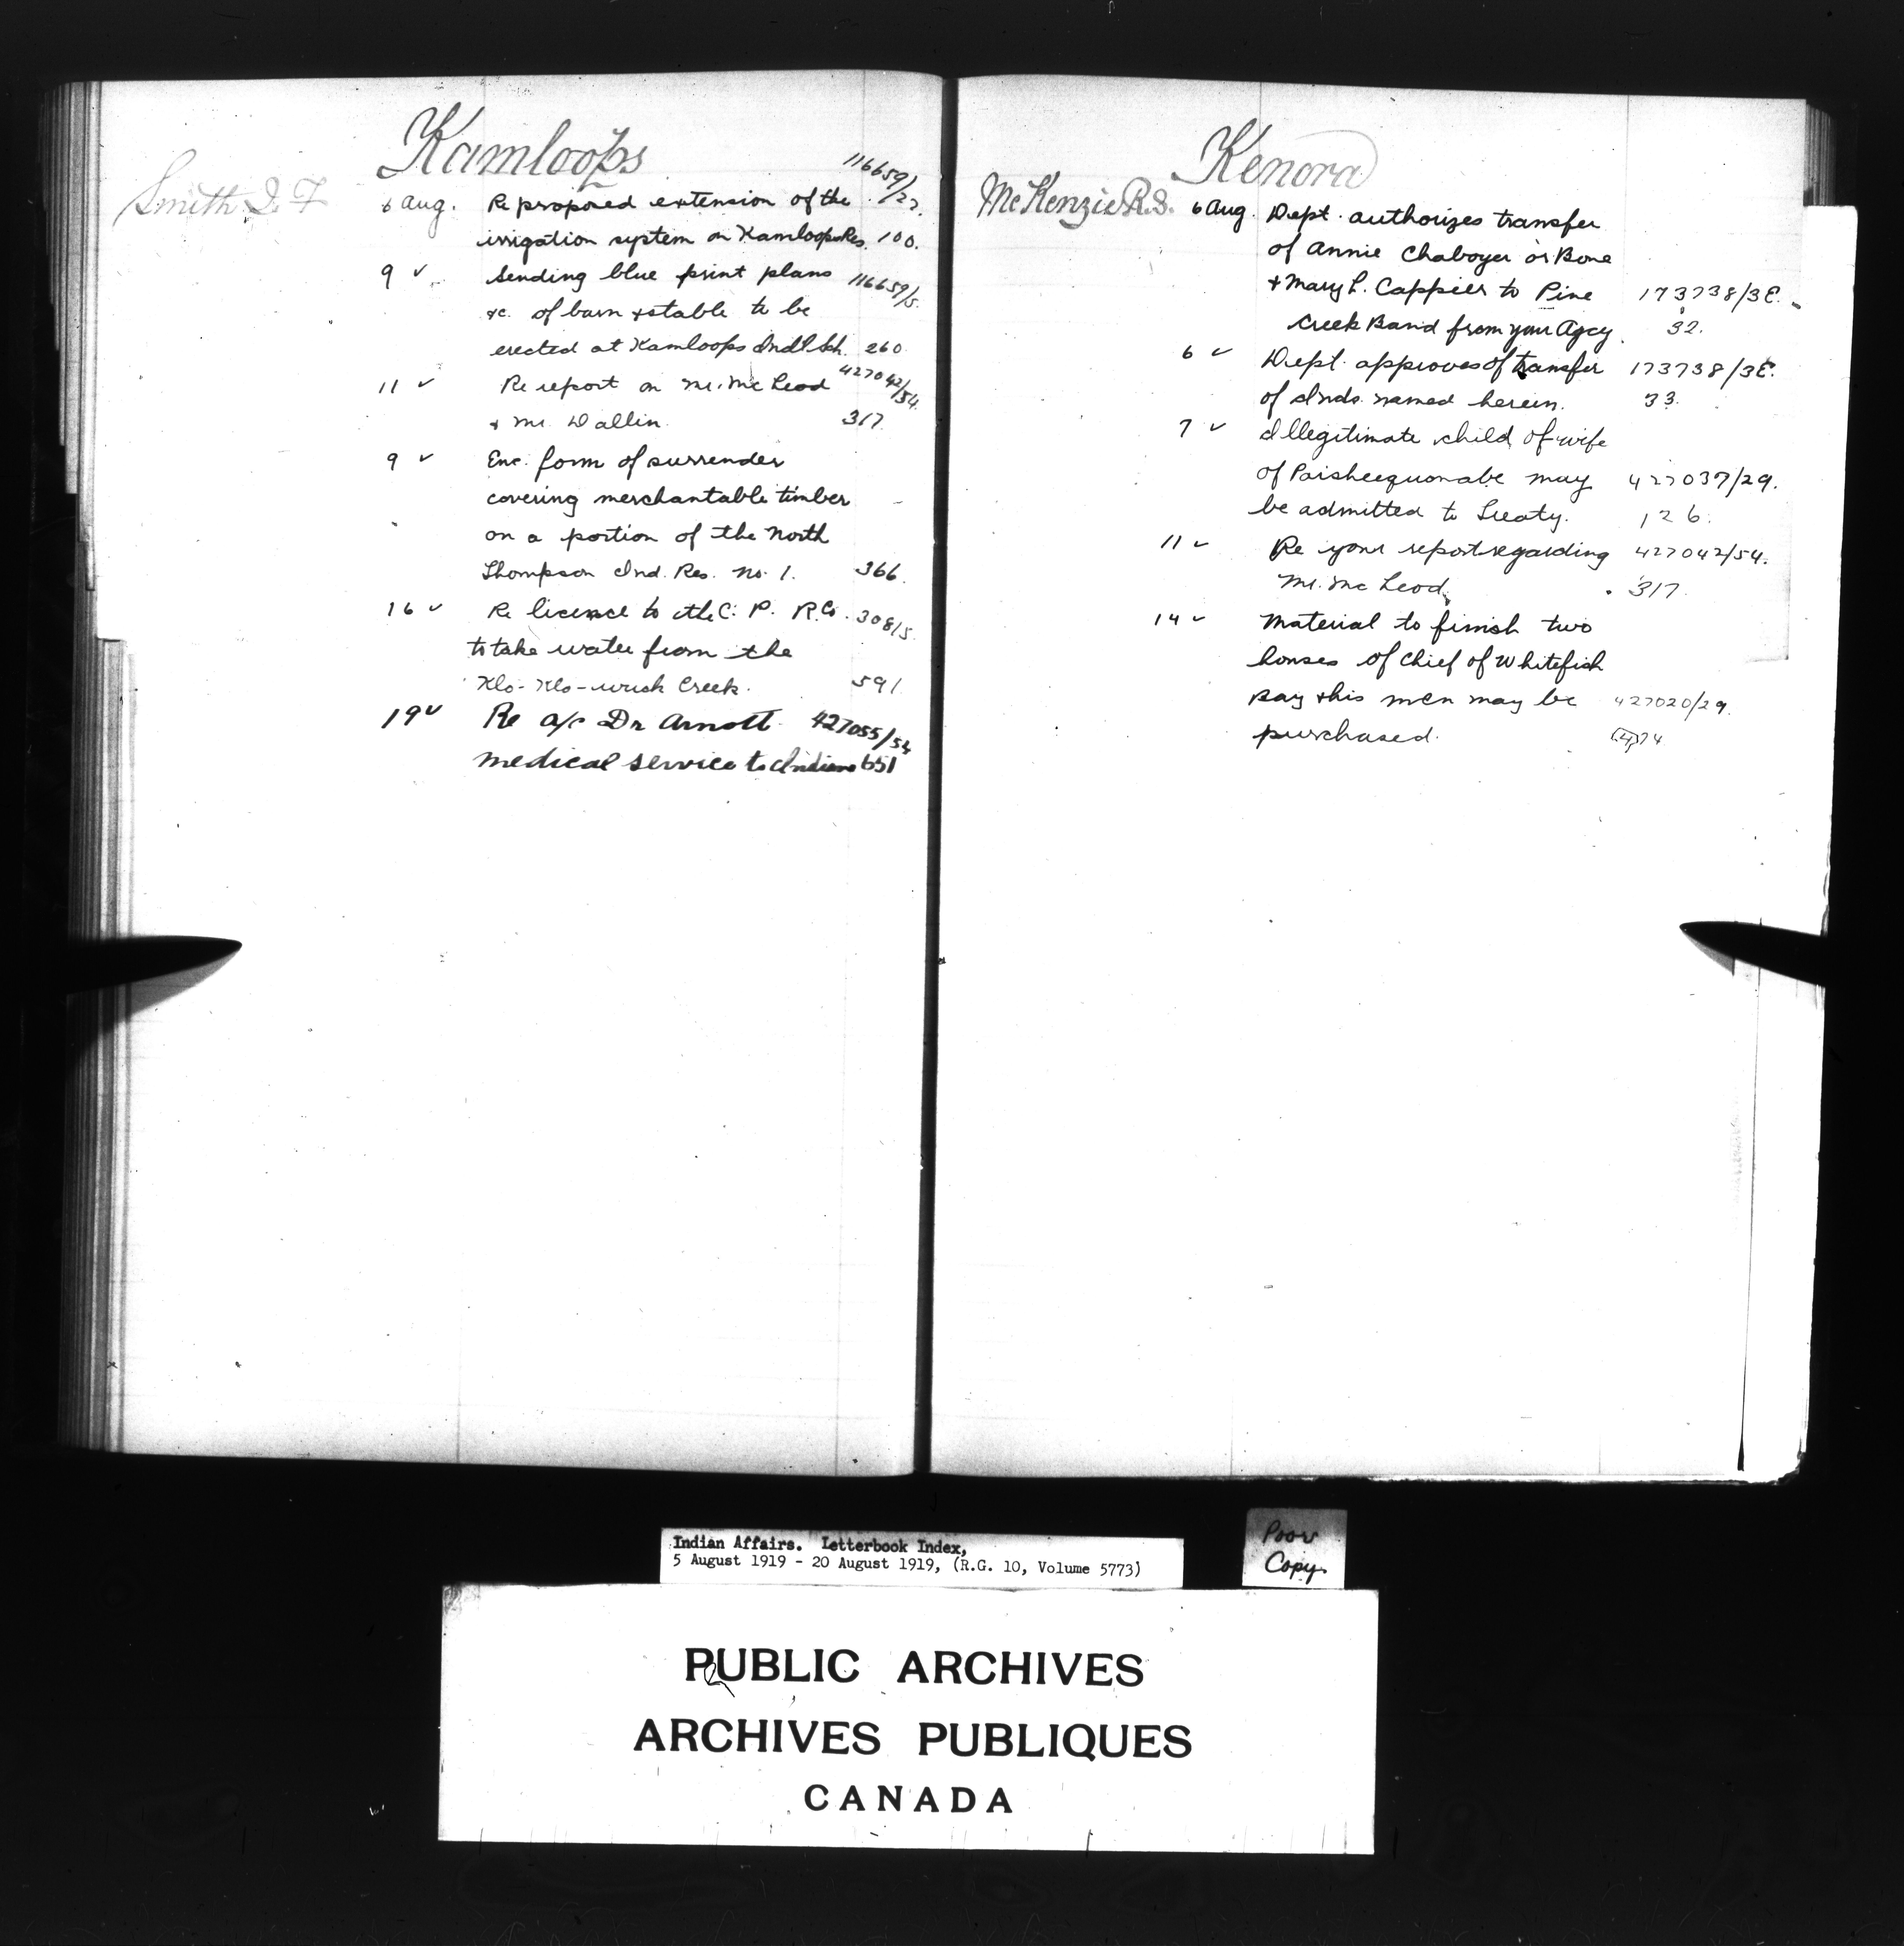 Kamloops
Smith J. F.
6 Aug. Re proposed extension of the 116659/27.
irrigation system on Kamloops Res. 100.
9 " Sending blue print plans 116659/5.
&c. of barn & stable to be
erected at Kamloops Indl Sch. 260
11 " Re report on Mr. McLeod 427042/54.
& Mr. Dallin. 317
9 " Enc. form of surrender
covering merchantable timber
on a portion of the North
Thompson Ind. Res. No. 1. 366.
16 " Re licence to the C. P. R. Co. 308/5
to take water from the
Creek. 591
19 " Re a/c Dr Arnott 427055/54
medical service to Indians 651
Kenora
McKenzie R.S. 6 Aug. Dept. authorizes transfer
of Annie Chaboyer or Bone
& Mary L. Cappier to Pine 173738/3E.
Creek Band from your Agcy. 32.
6 " Dept. approves of transfer 173738/3E.
of Inds. named herein. 33.
7 " Illegitimate child of wife
of Paisheequonabe may 427037/29.
be admitted to Treaty. 126.
11 " Re your report regarding 427042/54.
Mr. McLeod. 317.
14 " Material to finish two
houses of Chief of Whitefish
Bay & his men may be 427020/29.
purchased. 74
Indian Affairs. Letterbook Index,
5 August 1919 - 20 August 1919, (R.G. 10, Volume 5773)
Poor
Copy.
PUBLIC ARCHIVES
ARCHIVES PUBLIQUES
CANADA